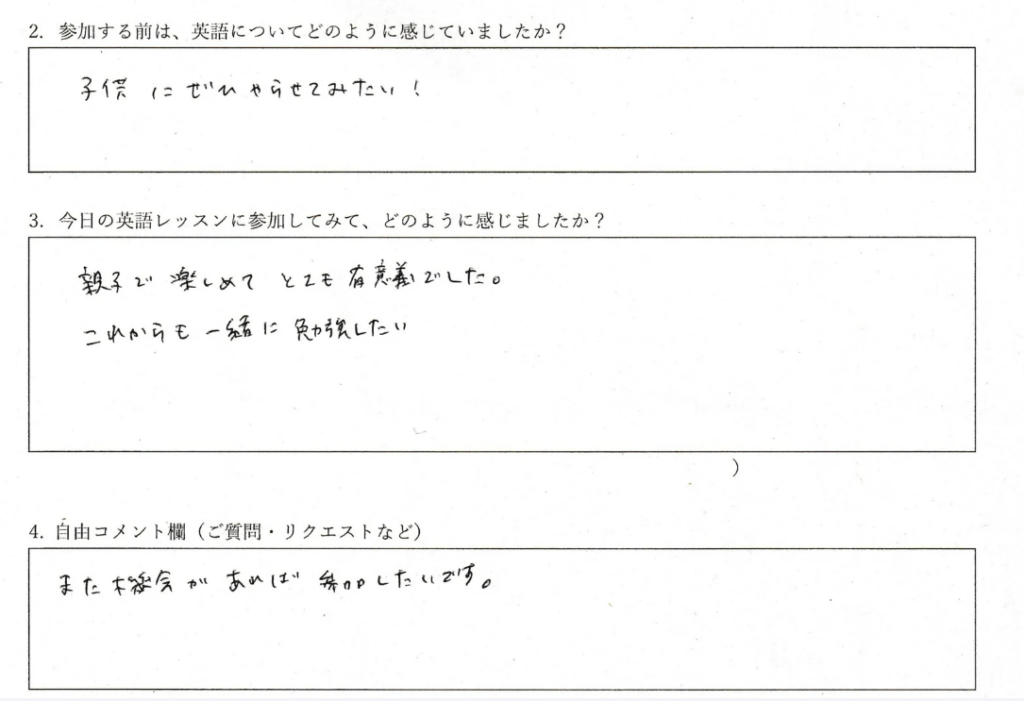 2. 参加する前は、英語についてどのように感じていましたか？
子供にぜひやらせてみたい！
3. 今日の英語レッスンに参加してみて、どのように感じましたか？
親子で楽しめてとても有意義でした。
これからも一緒に勉強したい
）
4. 自由コメント欄（ご質問・リクエストなど）
また機会があれば参加したいです。